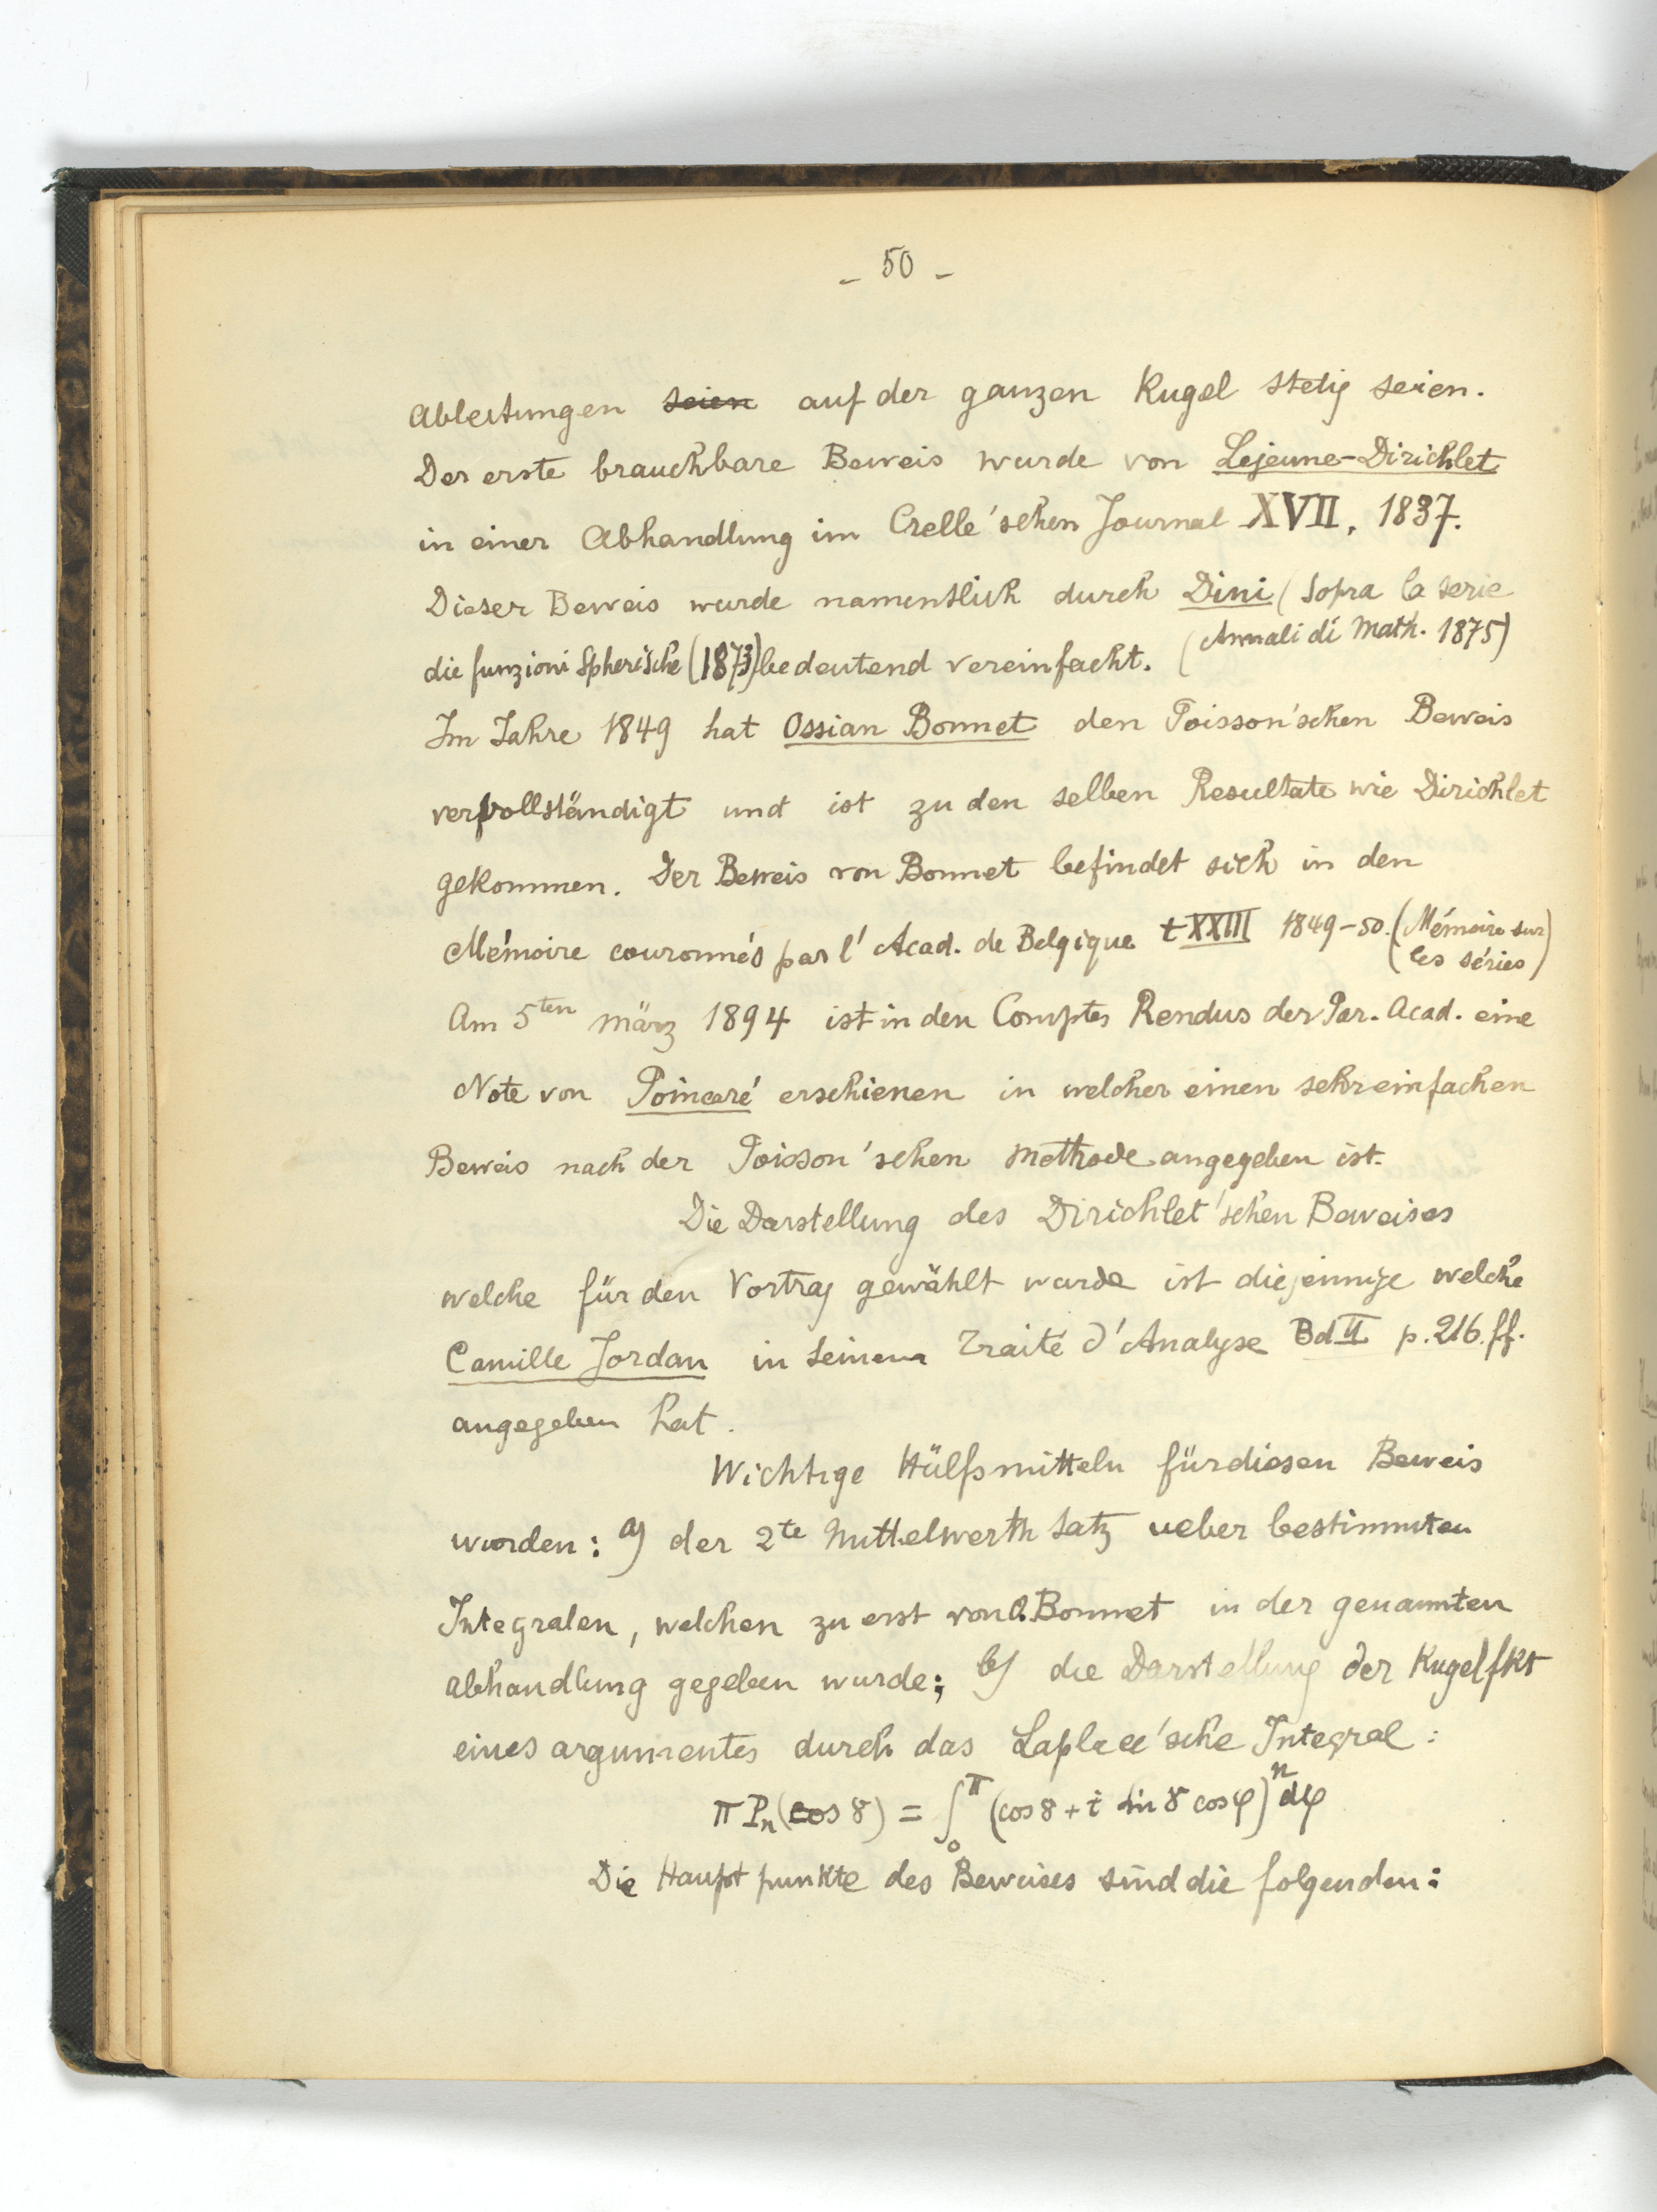 - 50 -
Ableitungen seien auf der ganzen Kugel stetig seien.
Der erste brauchbare Beweis wurde von Lejeune-Dirichlet
in einer Abhandlung im Crelle'schen Journal XVII, 1837.
Dieser Beweis wurde namentlich durch Dini (Sopra la serie
die funzioni spherische (1873) bedeutend vereinfacht. (Annali di Math. 1875)
Im Jahre 1849 hat Ossian Bonnet den Poisson'schen Beweis
vervollständigt und ist zu den selben Resultate wie Dirichlet
gekommen. Der Beweis von Bonnet befindet sich in den
Mémoire couronnés par l'Acad. de Belgique t XXIII 1849-50. (Mémoire sur
les séries)
Am 5ten März 1894 ist in den Comptes Rendus der Par. Acad. eine
Note von Poincaré erschienen in welcher einen sehr einfachen
Beweis nach der Poisson'schen Methode angegeben ist.
Die Darstellung des Dirichlet'schen Beweises
welche für den Vortrag gewählt wurde ist diejennige welche
Camille Jordan in seinem Traité d'Analyse Bd II p. 216. ff.
angegeben hat.
Wichtige Hülfsmitteln für diesen Beweis
wurden: a) der 2te Mittelwerth Satz ueber bestimmten
Integralen, welchen zu erst von O. Bonnet in der genannten
Abhandlung gegeben wurde; b) die Darstellung der Kugelfkt
eines argumentes durch das Laplace'sche Integral:
π Pₙ(cos γ) = ∫₀^π (cos γ + i sin γ cos φ)ⁿ dφ
Die Hauptpunkte des Beweises sind die folgenden: